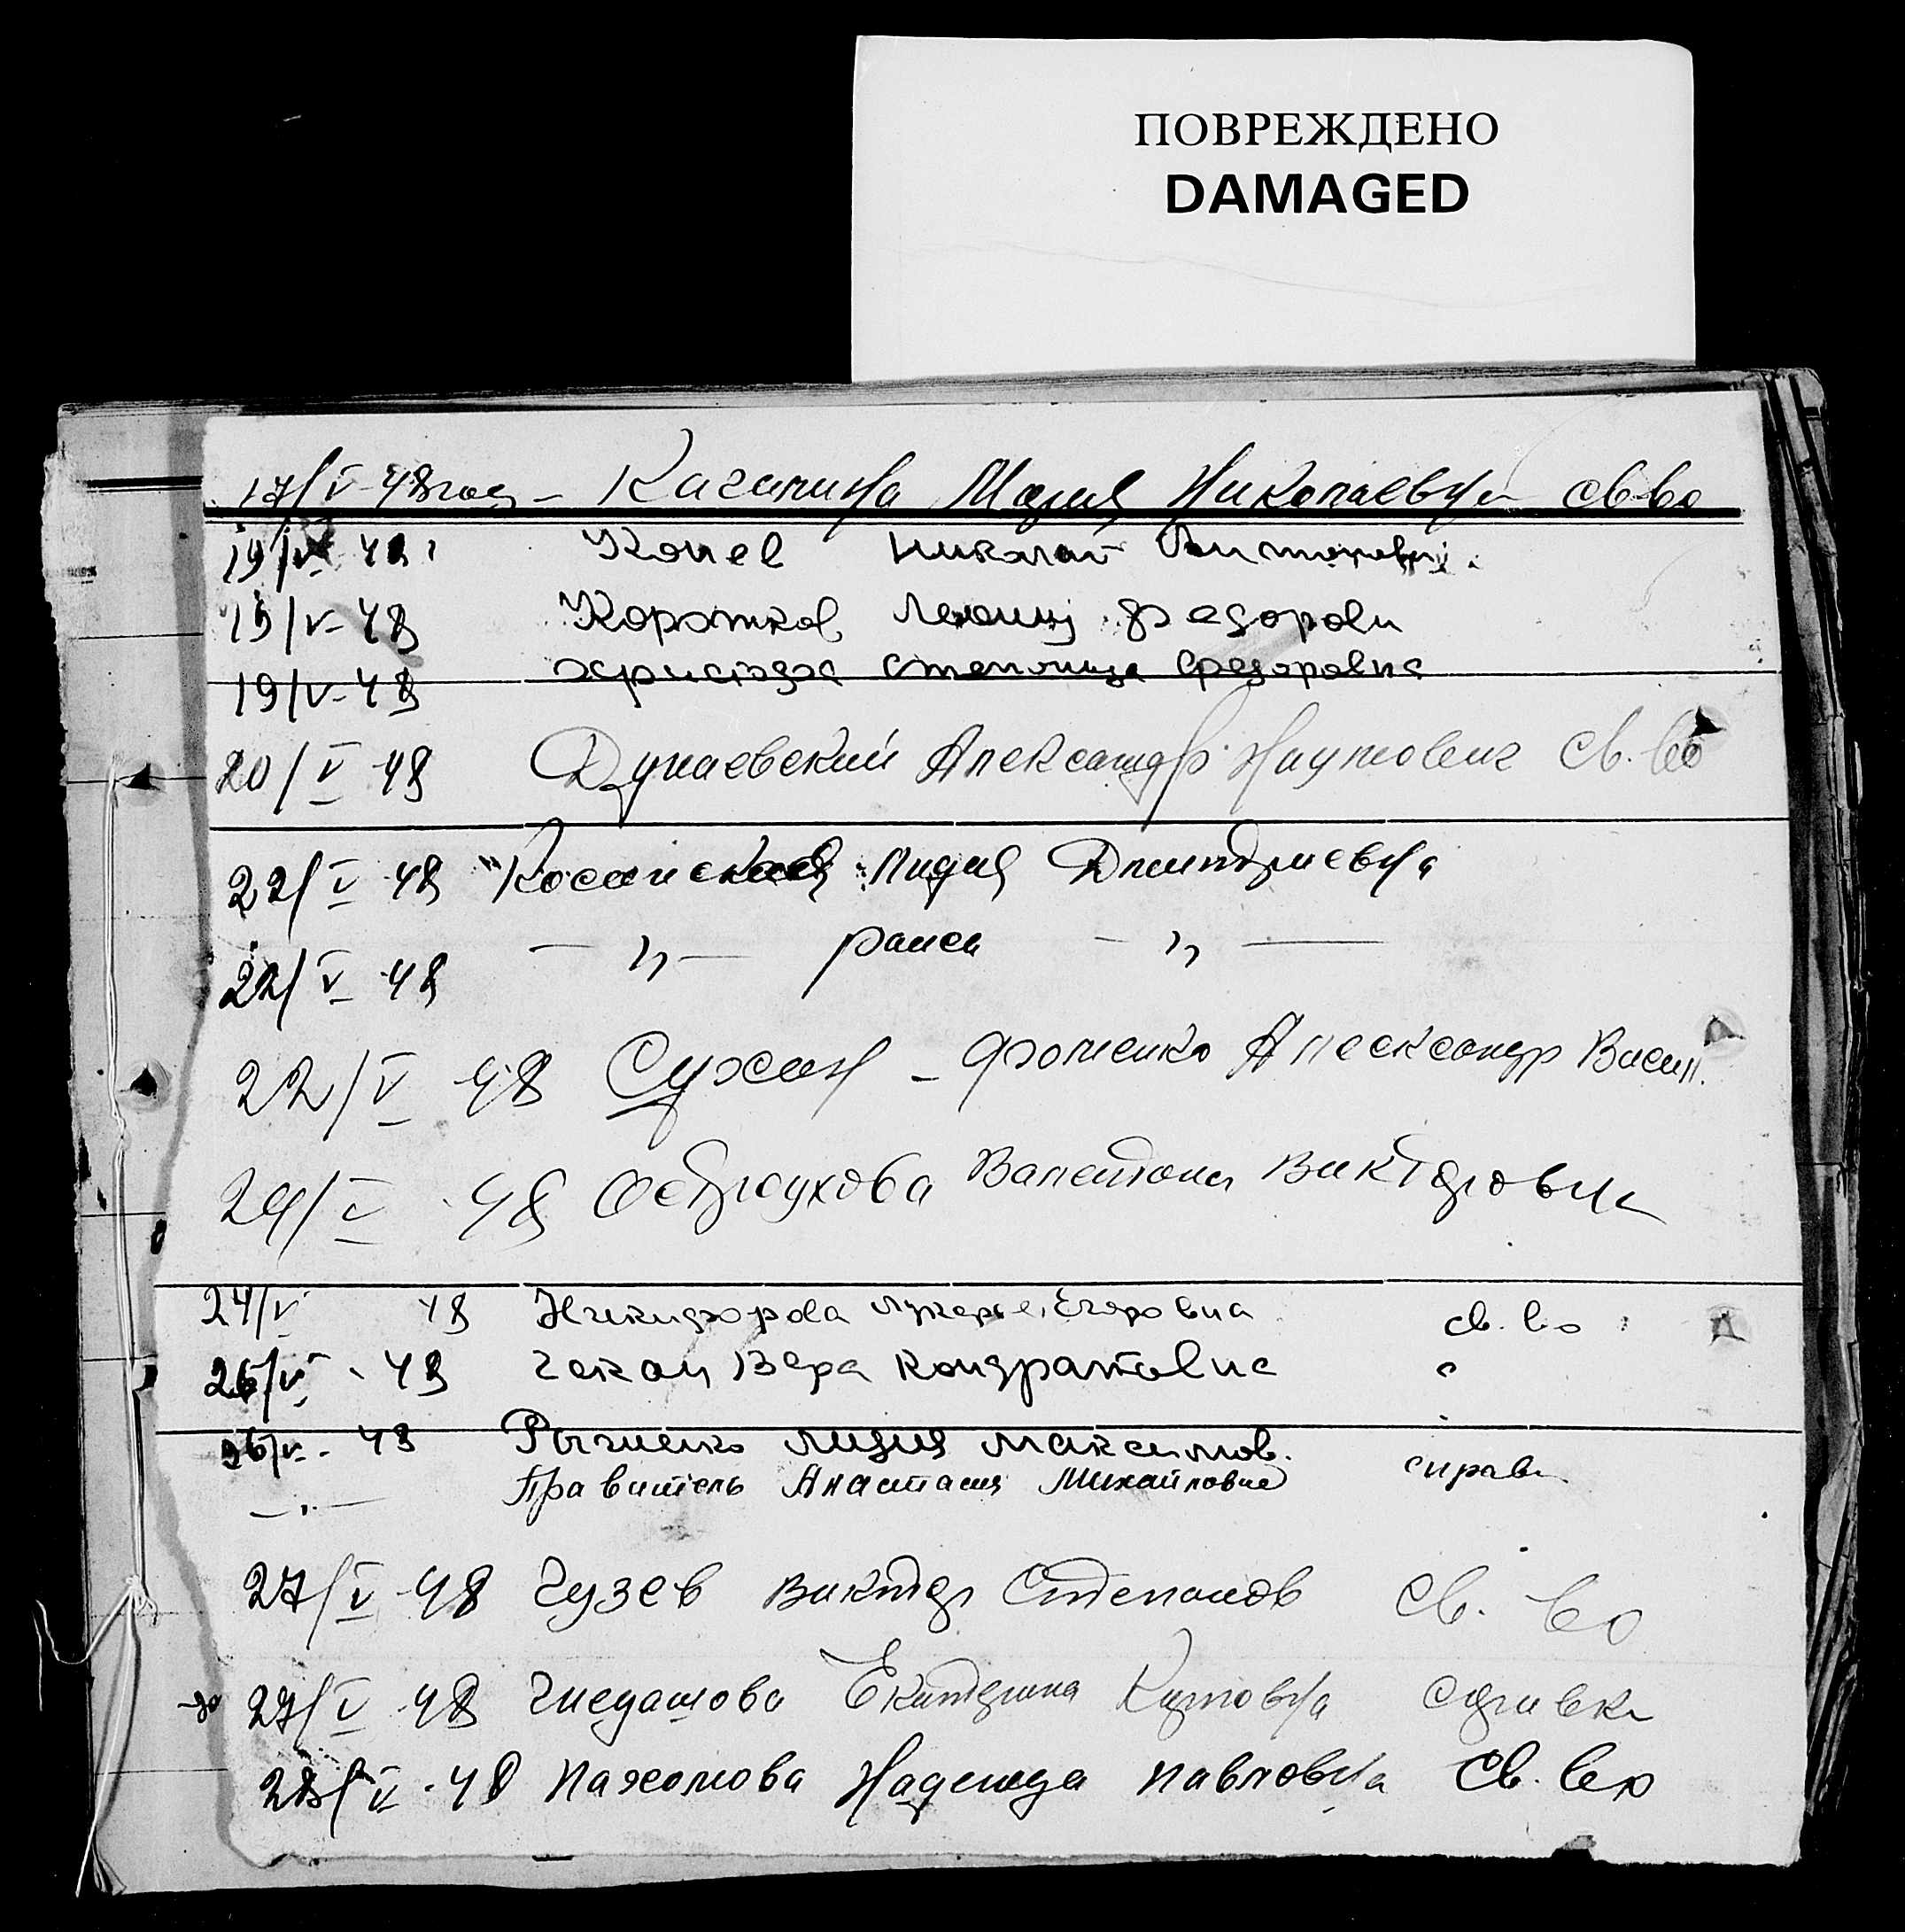 ПОВРЕЖДЕНО
DAMAGED
17/V-48 год - Качанина Мария Николаевна св-во
19/V 48 Копев Николай
19/V-48 Коротков Леонид Федорови
19/V-48 Степанида Федоровна
20/V 48 Дунаевский Александр Наумович св.во
22/V 48 Лидия Дмитриевна
22/V 48 — „ — Раиса — „ —
22/V 48 Сухан - Фоменко Александр Васил.
24/V 48 Остроухова Валентина Викторовна
24/V 48 Никифорова Лукерья Егоровна св. во
26/V - 48 Чекан Вера Кондратовна "
26/V - 48 Рыченко Лидия Максимов.
— " — Правитель Анастасия Михайловна справ
27/V 48 Гузев Виктор Степанов св. во
27/V 48 Гнедашова Екатерина Справка
28/V - 48 Пахомова Надежда Павловна св. во